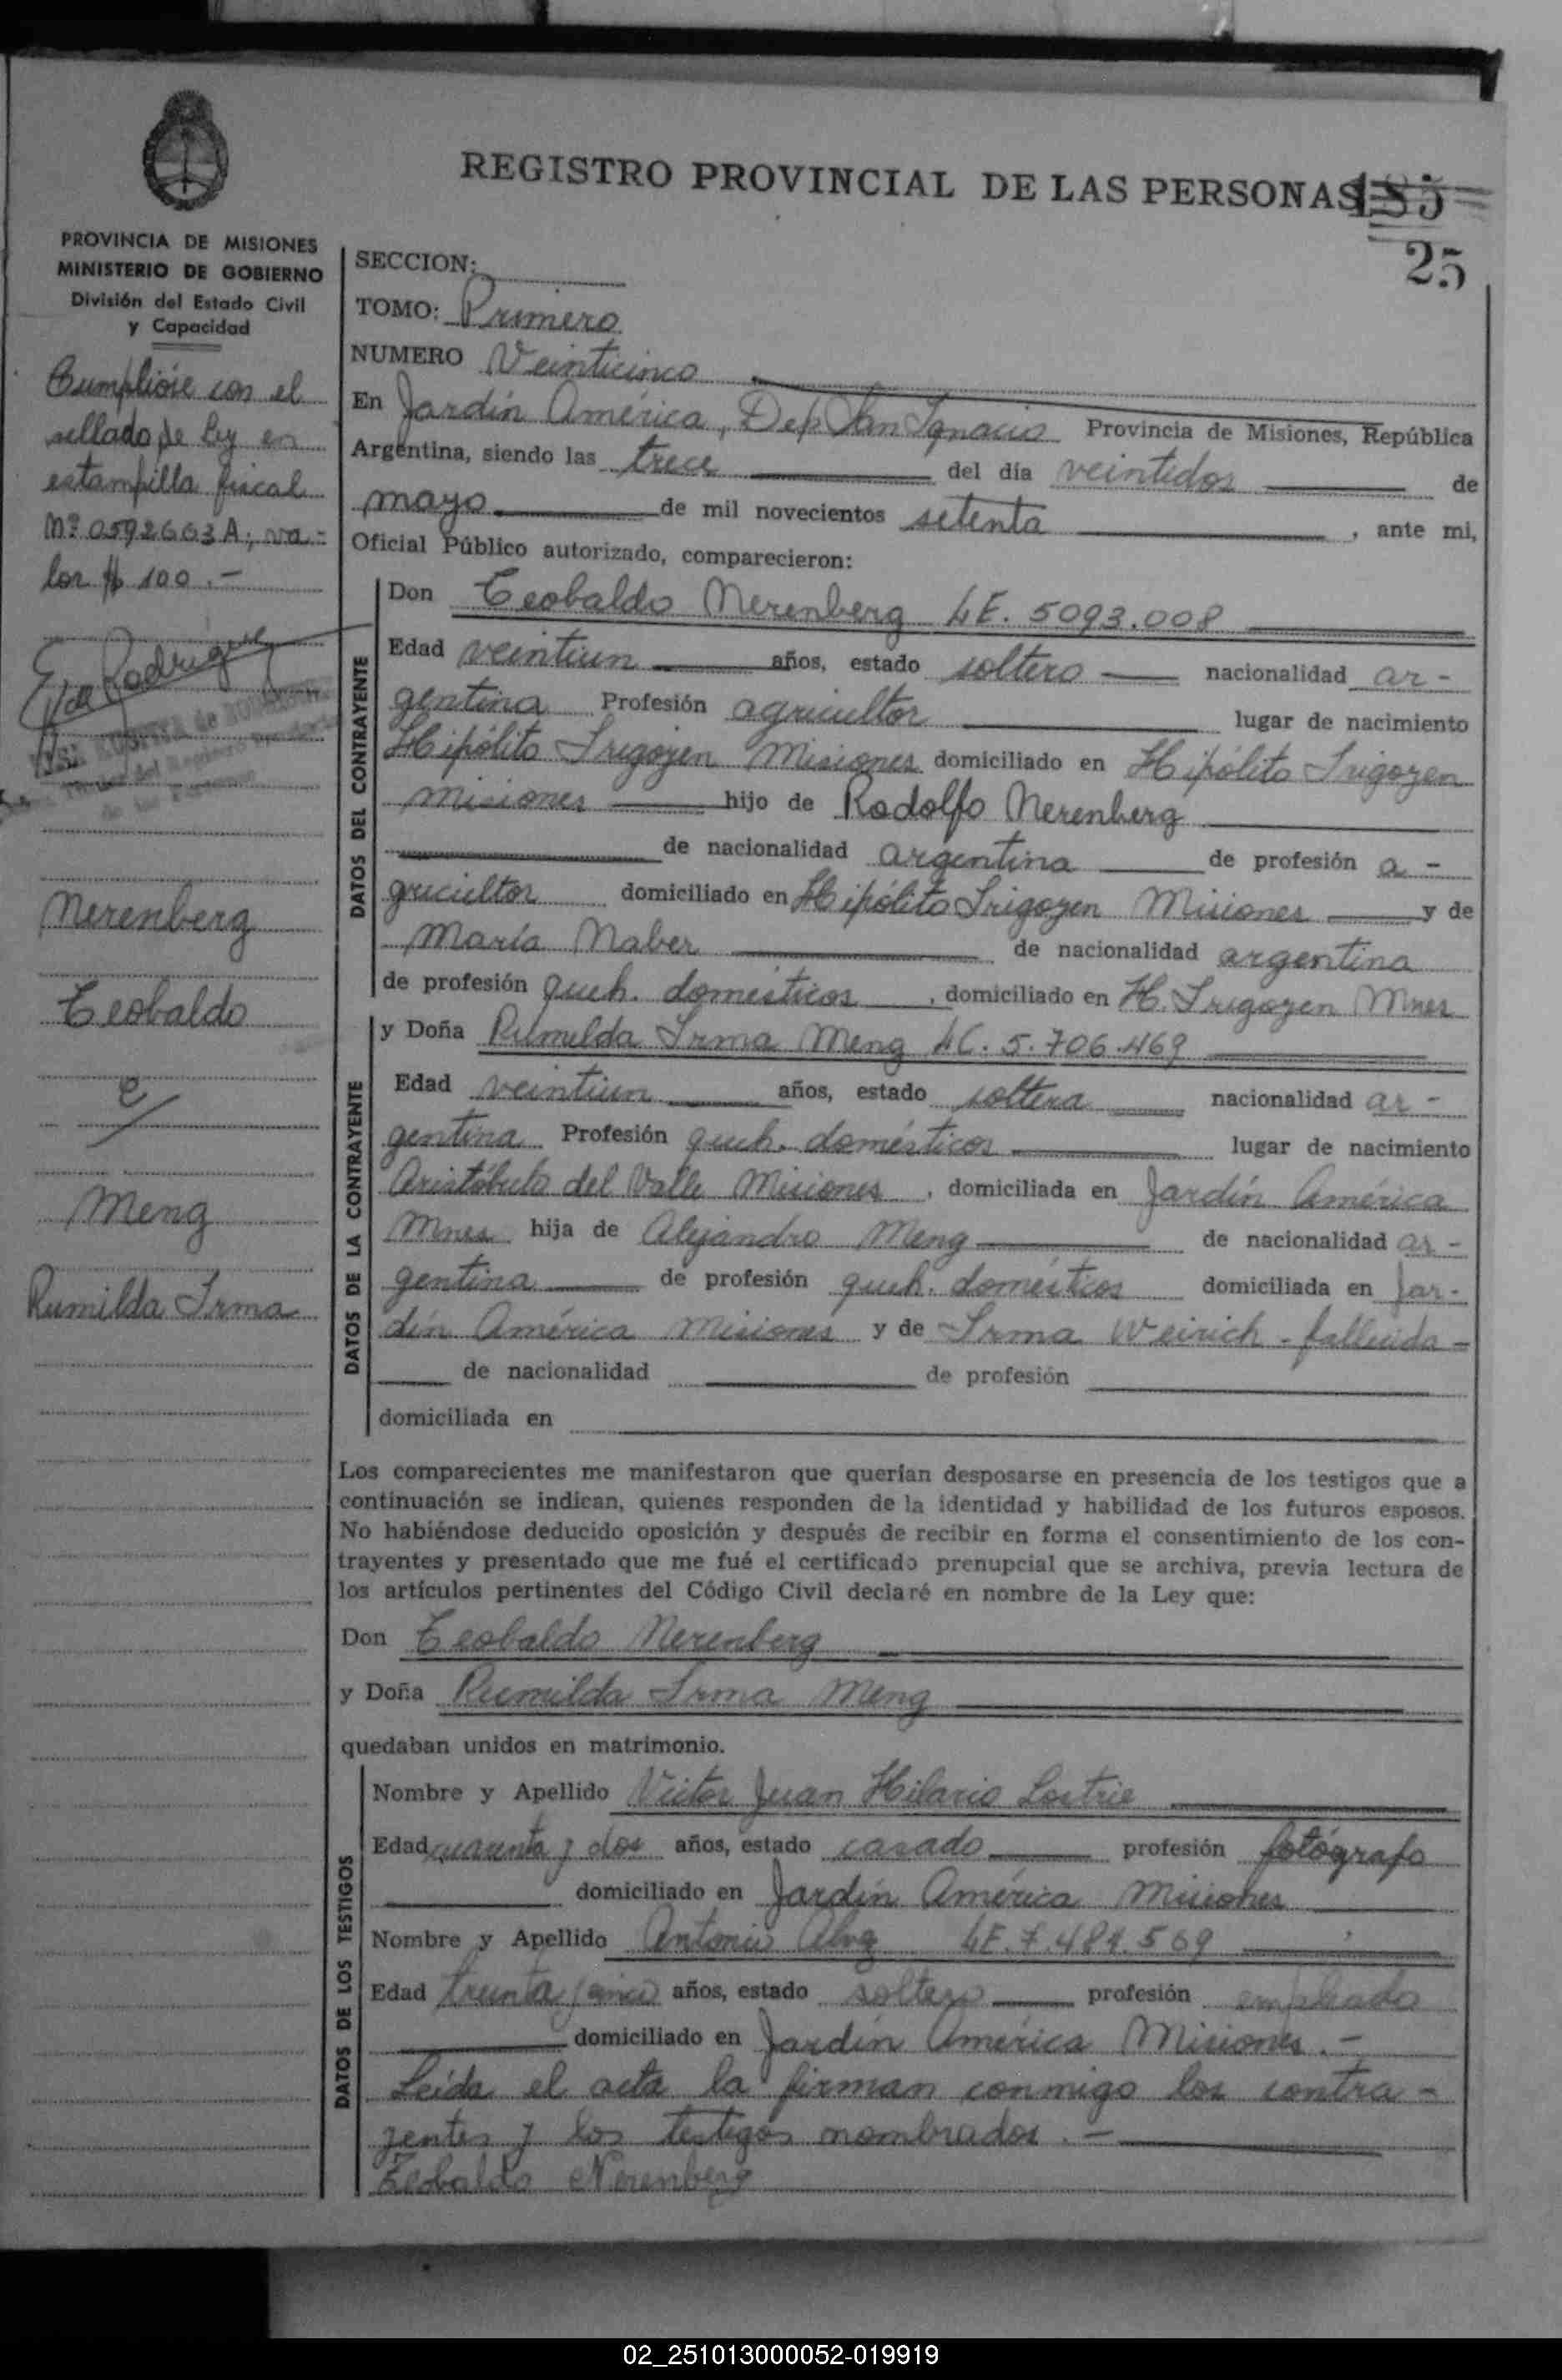 REGISTRO PROVINCIAL DE LAS PERSONAS
185
25
PROVINCIA DE MISIONES
MINISTERIO DE GOBIERNO
División del Estado Civil
y Capacidad
Cumplióse con el
sellado de ley en
estampilla fiscal
Nº 0592603A; va-
lor $ 100.-
Nerenberg
Teobaldo
c/
Meng
Rumilda Irma
SECCION:
TOMO: Primero
NUMERO Veinticinco
En Jardín América, Dep San Ignacio Provincia de Misiones, República
Argentina, siendo las trece del día veintidos de
mayo de mil novecientos setenta, ante mi,
Oficial Público autorizado, comparecieron:
DATOS DEL CONTRAYENTE
Don Teobaldo Nerenberg LE. 5093.008
Edad veintiun años, estado soltero nacionalidad ar-
gentina Profesión agricultor lugar de nacimiento
Hipólito Irigoyen Misiones domiciliado en Hipólito Irigoyen
Misiones hijo de Rodolfo Nerenberg
de nacionalidad argentina de profesión a-
gricultor domiciliado en Hipólito Irigoyen Misiones y de
María Naber de nacionalidad argentina
de profesión queh. domésticos, domiciliado en H. Irigoyen Mnes
DATOS DE LA CONTRAYENTE
y Doña Rumilda Irma Meng LC. 5.706.469
Edad veintiun años, estado soltera nacionalidad ar-
gentina Profesión queh. domésticos lugar de nacimiento
Aristóbulo del Valle Misiones, domiciliada en Jardín América
Mnes hija de Alejandro Meng de nacionalidad ar-
gentina de profesión queh. domésticos domiciliada en Jar-
dín América Misiones y de Irma Weirich - fallecida -
de nacionalidad de profesión
domiciliada en
Los comparecientes me manifestaron que querían desposarse en presencia de los testigos que a
continuación se indican, quienes responden de la identidad y habilidad de los futuros esposos.
No habiéndose deducido oposición y después de recibir en forma el consentimiento de los con-
trayentes y presentado que me fué el certificado prenupcial que se archiva, previa lectura de
los artículos pertinentes del Código Civil declaré en nombre de la Ley que:
Don Teobaldo Nerenberg
y Doña Rumilda Irma Meng
quedaban unidos en matrimonio.
DATOS DE LOS TESTIGOS
Nombre y Apellido Victor Juan Hilario
Edad cuarenta y dos años, estado casado profesión fotógrafo
domiciliado en Jardín América Misiones
Nombre y Apellido Antonio LE. 7.484.569
Edad treinta y cinco años, estado soltero profesión empleado
domiciliado en Jardín América Misiones.-
Leída el acta la firman conmigo los contra-
yentes y los testigos nombrados.-
Teobaldo Nerenberg
02_251013000052-019919